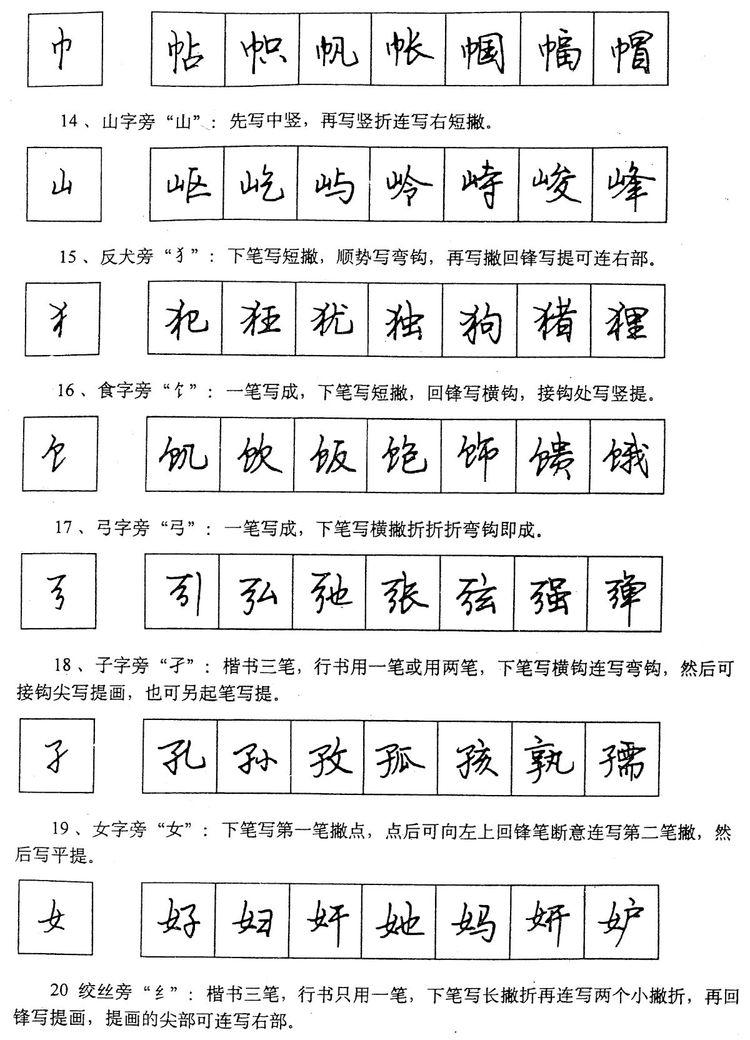 巾 帖 帜 帆 帐 帼 幅 帽
14、山字旁“山”：先写中竖，再写竖折连写右短撇。
山 岖 屹 屿 岭 峙 峻 峰
15、反犬旁“犭”：下笔写短撇，顺势写弯钩，再写撇回锋写提可连右部。
犭 犯 狂 犹 独 狗 猎 狸
16、食字旁“饣”：一笔写成，下笔写短撇，回锋写横钩，接钩处写竖提。
饣 饥 饮 饭 饱 饰 馈 饿
17、弓字旁“弓”：一笔写成，下笔写横撇折折折弯钩即成。
弓 引 弘 弛 张 弦 强 弹
18、子字旁“孑”：楷书三笔，行书用一笔或用两笔，下笔写横钩连写弯钩，然后可
接钩尖写提画，也可另起笔写提。
孑 孔 孙 孜 孤 孩 孰 孺
19、女字旁“女”：下笔写第一笔撇点，点后可向左上回锋笔断意连写第二笔撇，然
后写平提。
女 好 妇 奸 她 妈 妍 妒
20 绞丝旁“纟”：楷书三笔，行书只用一笔，下笔写长撇折再连写两个小撇折，再回
锋写提画，提画的尖部可连写右部。